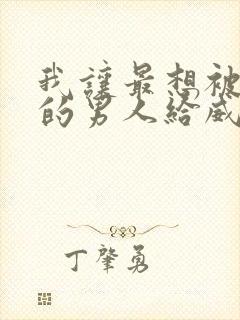 我讓最想被
的男人給威
丁肇勇